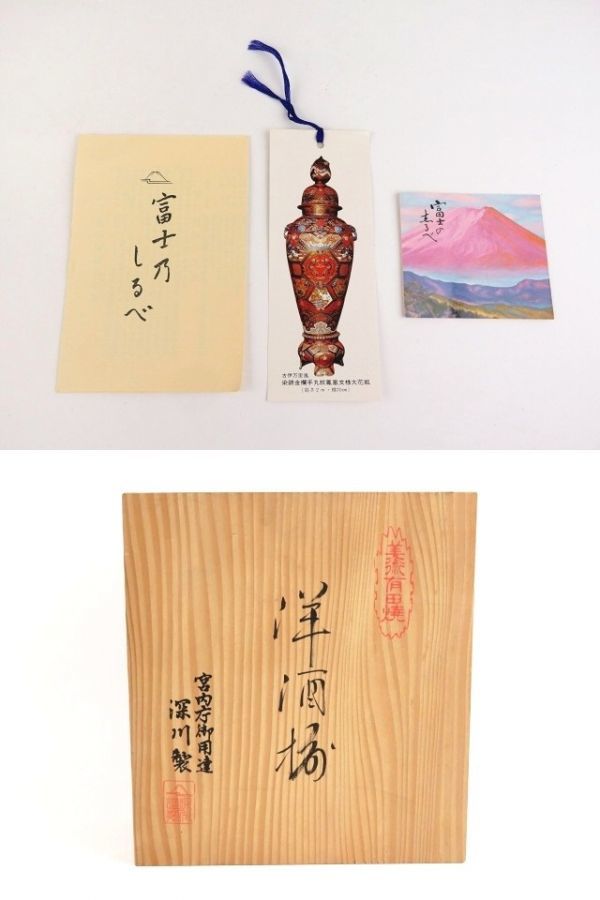 富士乃
しるべ
古伊万里風
染錦金襴手丸紋鳳凰文様大花瓶
富士の
志るべ
姜流有田焼
洋酒揃
宮内庁御用達
深川製